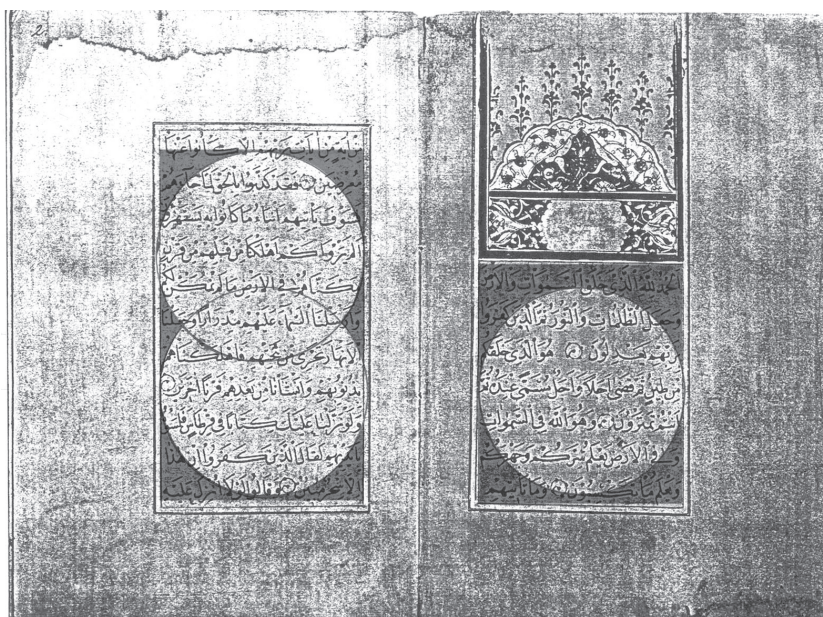 2
الحمد لله الذي خلق السموات والارض
وجعل الظلمات والنور ثم الذين كفروا
بربهم يعدلون هو الذي خلقكم
من طين ثم قضى اجلا واجل مسمى عنده ثم
انتم تمترون وهو الله في السموات
وفي الارض يعلم سركم وجهركم
ويعلم ما تكسبون وما تاتيهم
من اية من ايات ربهم الا كانوا عنها
معرضين فقد كذبوا بالحق لما جاءهم
فسوف ياتيهم انباء ما كانوا به يستهزؤن
الم يروا كم اهلكنا من قبلهم من قرن
مكناهم في الارض ما لم نمكن لكم
وارسلنا السماء عليهم مدرارا وجعلنا
الانهار تجري من تحتهم فاهلكناهم
بذنوبهم وانشانا من بعدهم قرنا اخرين
ولو نزلنا عليك كتابا في قرطاس فلمسوه
بايديهم لقال الذين كفروا ان هذا
الا سحر مبين وقالوا لولا انزل عليه